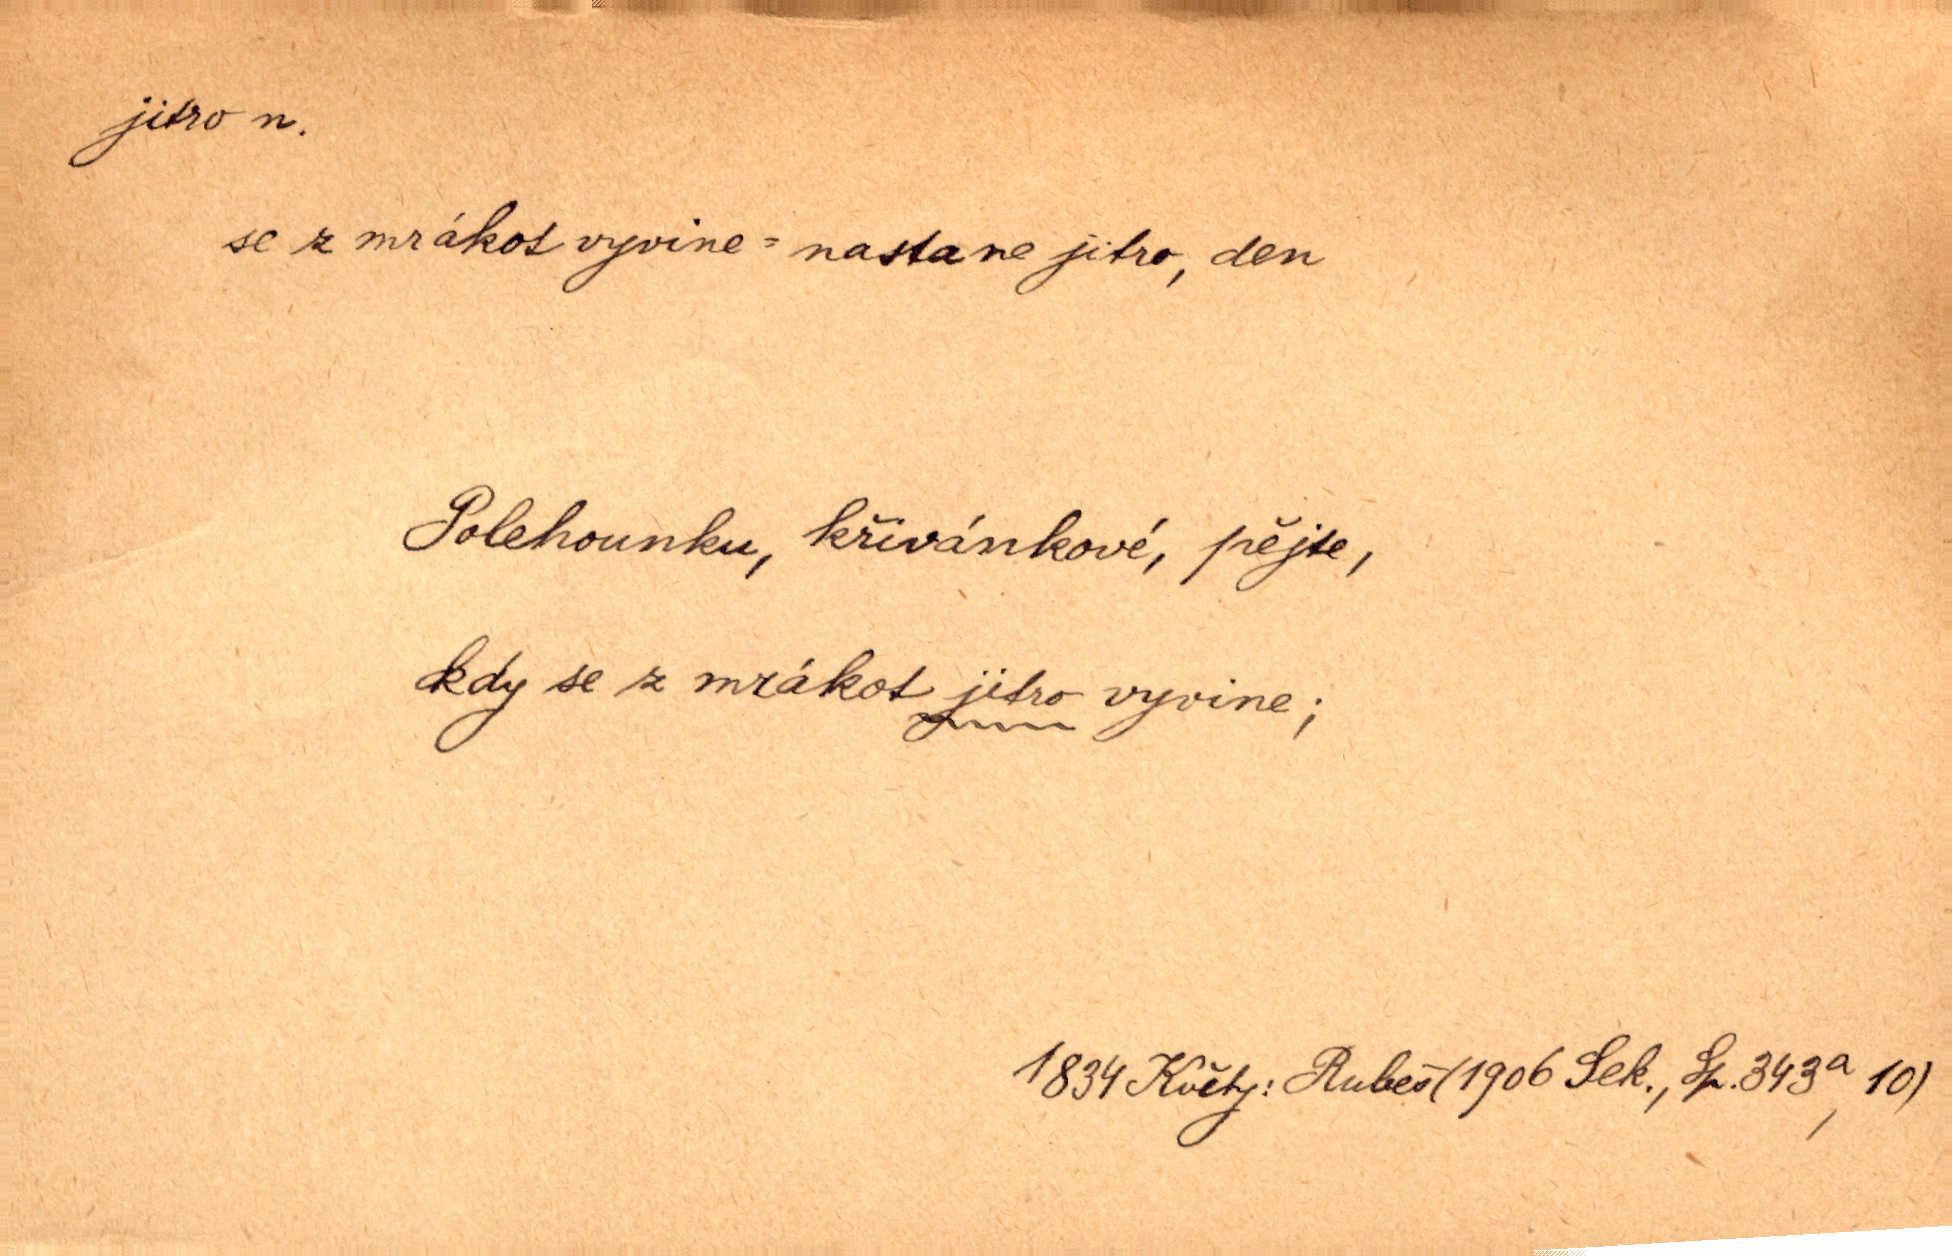 jitro n.
se z mrákot vyvine = nastane jitro, den
Polehounku, křivánkové, pějte,
kdy se z mrákot jitro vyvine;
1834 Květy: Rubeš (1906 Sek., Sp. 343a, 10)